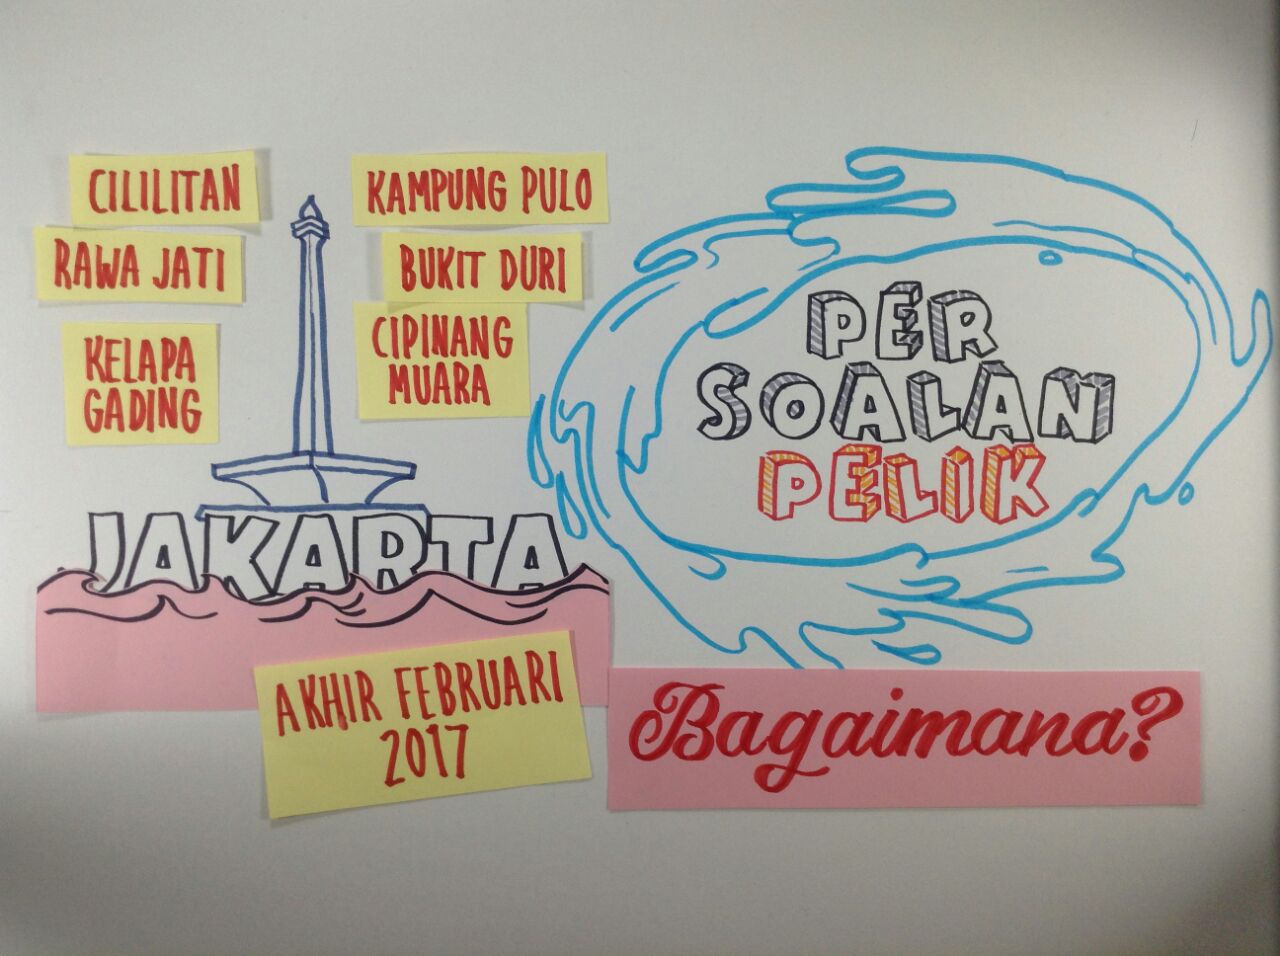 CILILITAN
RAWA JATI
KELAPA
GADING
KAMPUNG PULO
BUKIT DURI
CIPINANG
MUARA
JAKARTA
AKHIR FEBRUARI
2017
PER
SOALAN
PELIK
Bagaimana?